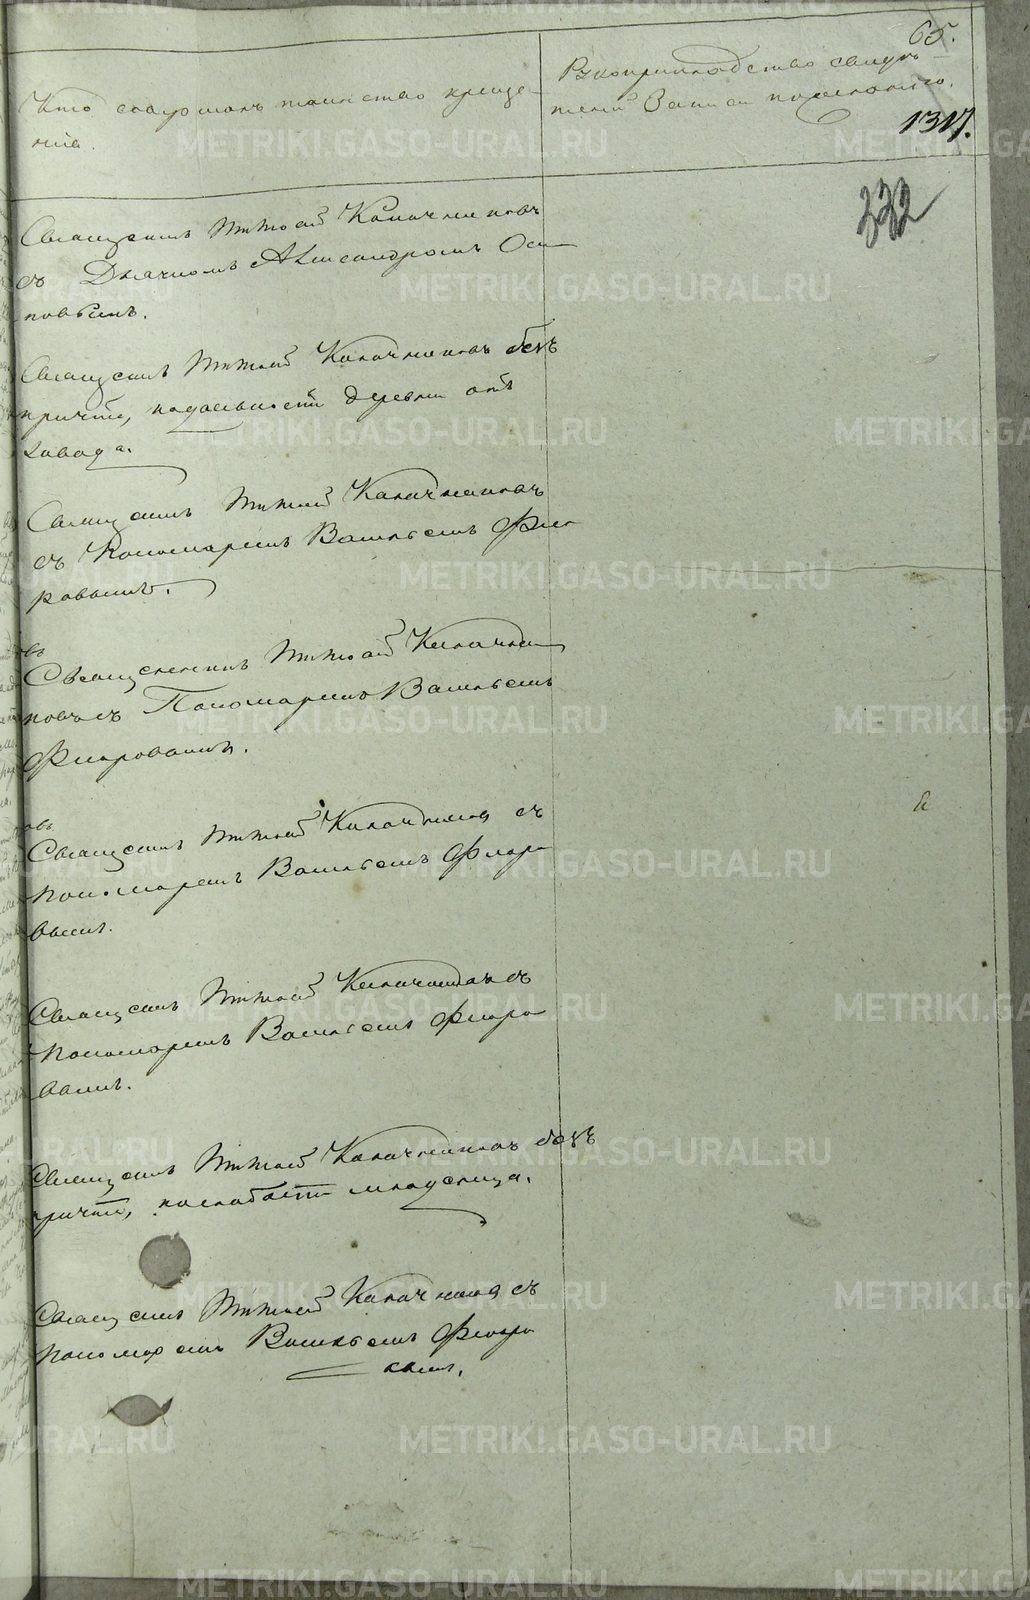 65.
Кто совершалъ таинство креще-
нія.
Рукоприкладство свидѣ-
телей Записи по желанію.
1317.
332
Священникъ Тимоѳей Калачниковъ
съ Дьячкомъ Александромъ Оси-
повымъ.
Священ. Тимоѳей Калачниковъ безъ
причта, по дальности деревни отъ
завода.
Священ. Тимоѳей Калачниковъ
съ Пономаремъ Васильемъ Фло-
ровымъ.
Священникъ Тимоѳей Калачни-
ковъ съ Пономаремъ Васильемъ
Флоровымъ.
Священ. Тимоѳей Калачниковъ съ
пономаремъ Васильемъ Флоро-
вымъ.
Священ. Тимоѳей Калачниковъ съ
пономаремъ Васильемъ Флоро-
вымъ.
Священ. Тимоѳей Калачниковъ безъ
причта, по слабости младенца.
Священ. Тимоѳей Калачниковъ съ
пономаремъ Васильемъ Флоро-
вымъ.
METRIKI.GASO-URAL.RU